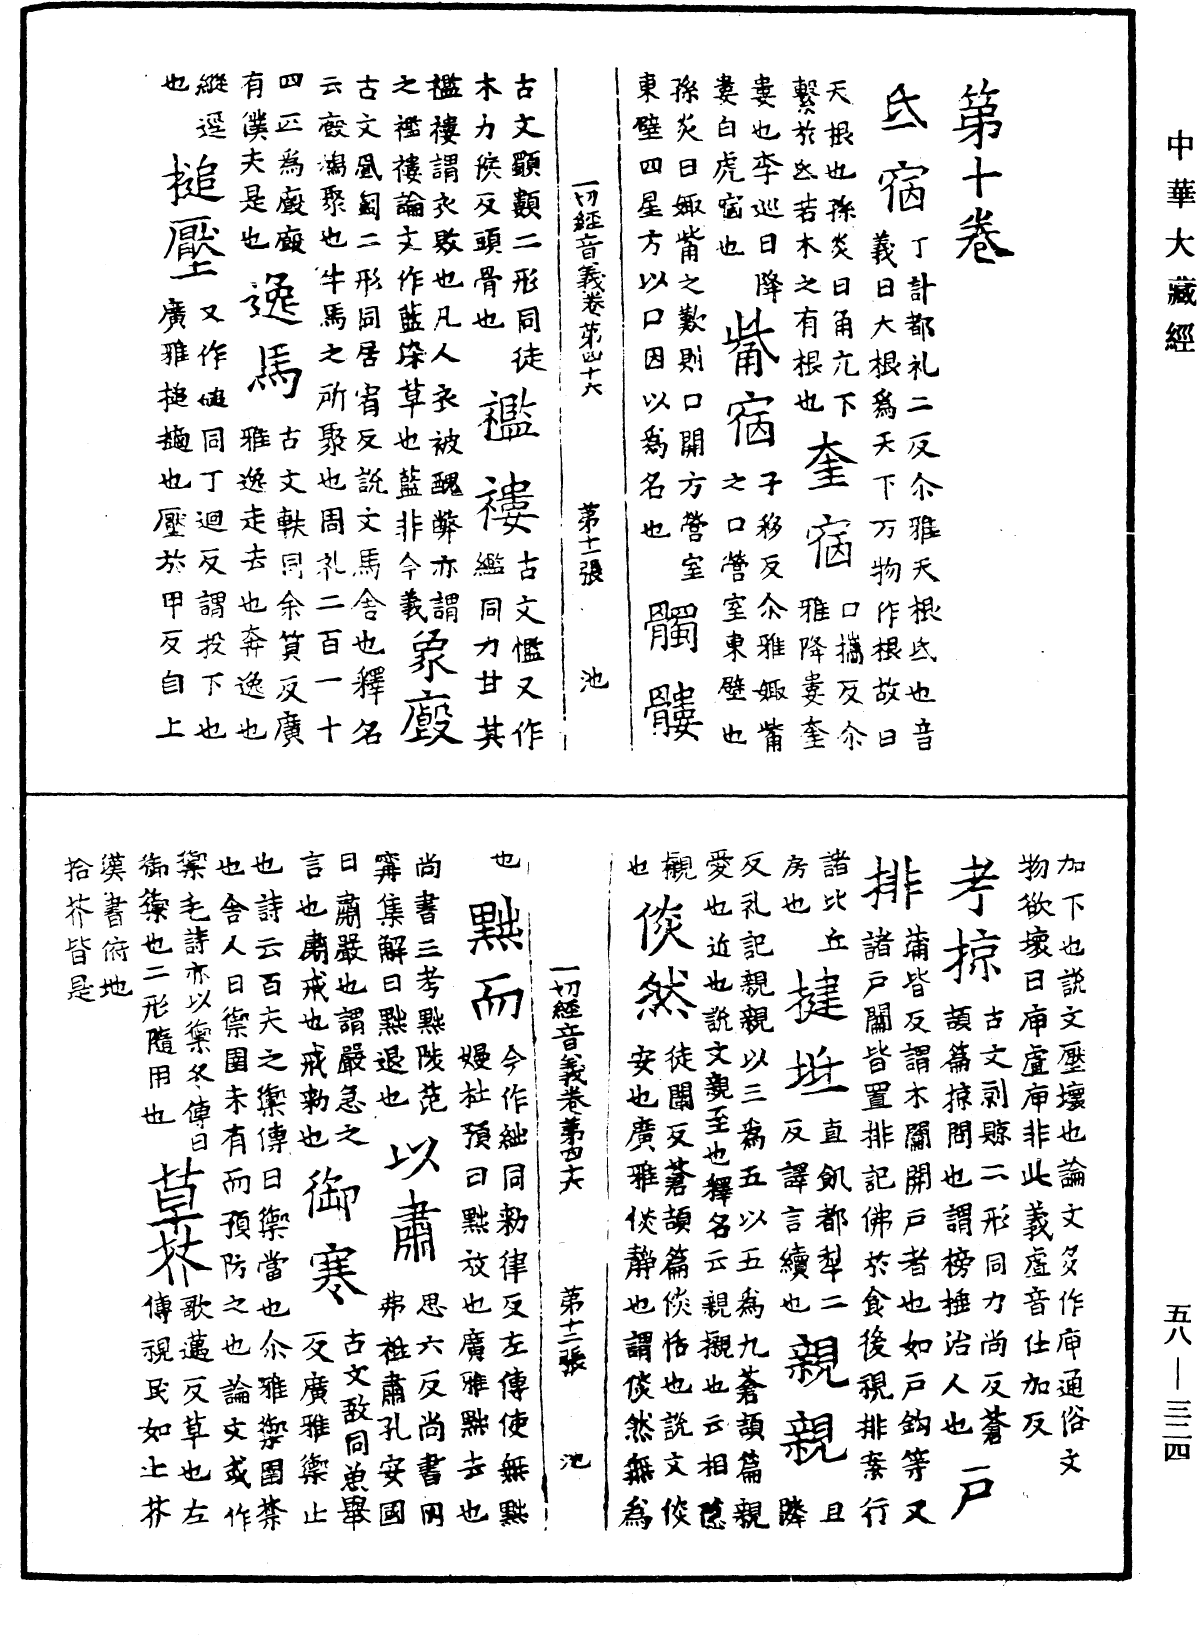 中華大藏經
第十卷
氐宿 丁計都礼二反尒雅天根氐也音
義曰大根爲天下万物作根故曰
天根也孫炎曰角亢下
繫於氐若木之有根也 奎宿 口攜反尒
雅降婁奎
婁也李巡曰降
婁白虎宿也 觜宿 子移反尒雅娵觜
之口營室東壁也
孫炎曰娵觜之歎則口開方營室
東壁四星方以口因以爲名也 髑髏
一切經音義卷第四十六 第十一張 池
古文二形同徒
木力侯反頭骨也 襤褸 古文㡮又作
繿同力甘其
襤褸謂衣敗也凡人衣被醜弊亦謂
之襤褸論文作藍染草也藍非今義 象廄
古文二形同居宥反說文馬舍也釋名
云廄鳩聚也牛馬之所聚也周礼二百一十
四匹爲廄廄
有僕夫是也 逸馬 古文軼同余質反廣
雅逸走去也奔逸也
縱逕
也 搥壓 又作磓同丁迴反謂投下也
廣雅搥擿也壓於甲反自上
加下也說文壓壞也論文多作庘通俗文
物欲壞曰庘虛庘非此義虛音仕加反
考掠 古文剠二形同力尚反蒼
頡篇掠問也謂榜捶治人也 戶
排 蒲皆反謂木闟開戶者也如戶鈎等又
諸戶闟皆置排記佛於食後視排桼行
諸比丘
房也 揵坻 直飢都犁二
反譯言續也 親親 且
隣
反礼記親親以三爲五以五爲九蒼頡篇親
愛也近也說文親至也釋名云親襯也云相隱
襯
也 倓然 徒闞反蒼頡篇倓恬也說文倓
安也廣雅倓静也謂倓然無爲
一切經音義卷第四十六 第十二張 池
也 黜而 今作絀同勑律反左傳使無黜
嫚杜預曰黜放也廣雅黜去也
尚書三考黜陟范
甯集解曰黜退也 以肅 思六反尚書罔
弗祗肅孔安國
曰肅嚴也謂嚴急之
言也肅戒也戒勑也 御寒 古文敔同魚舉
反廣雅禦止
也詩云百夫之禦傳曰禦當也尒雅禦圉禁
也舍人曰禦圉未有而預防之也論文或作
禦毛詩亦以禦冬傳曰
御禦也二形隨用也 草芥 歌邁反草也左
傳視民如土芥
漢書俯地
拾芥皆是
五八—三二四